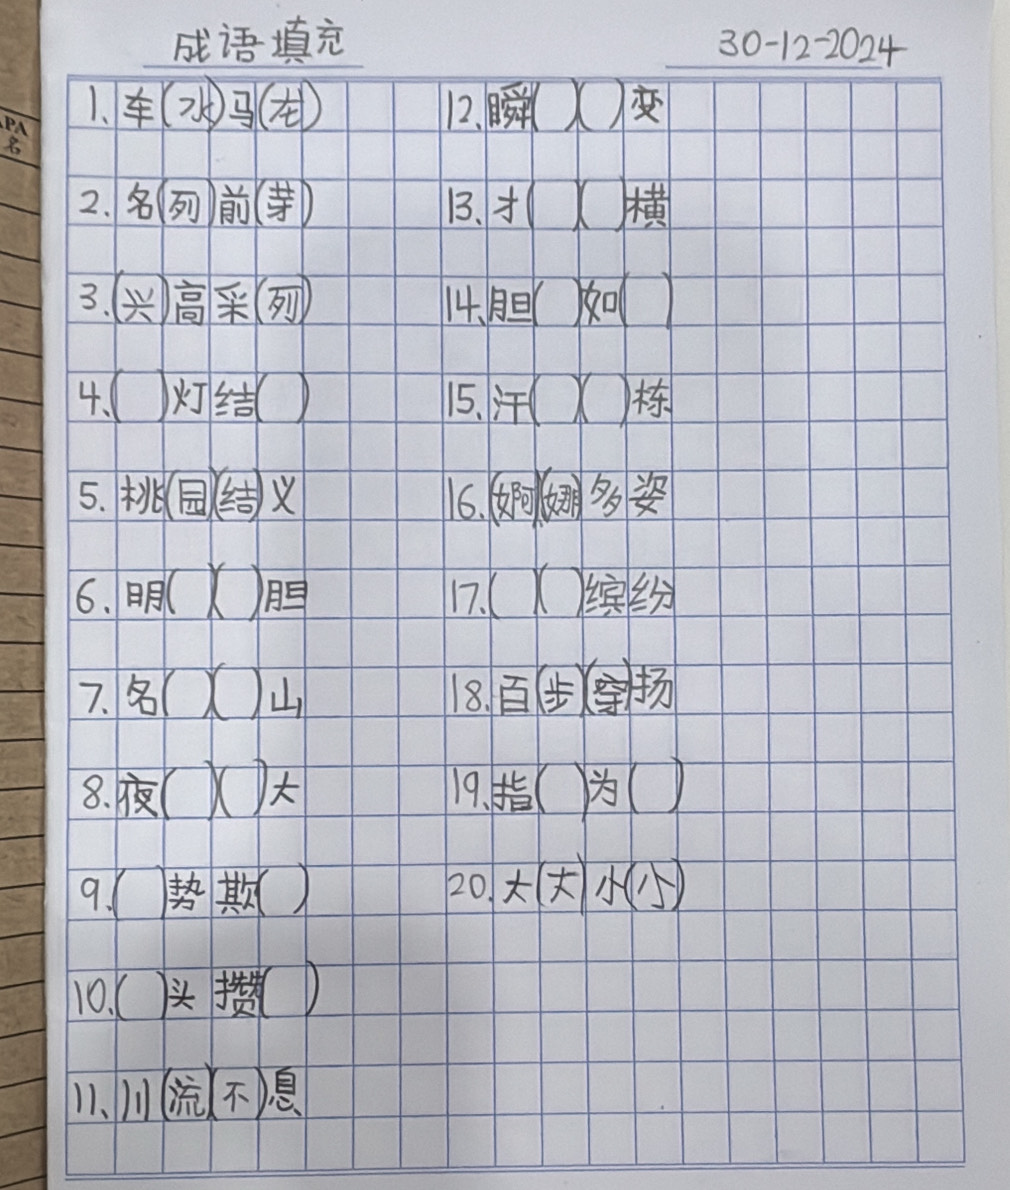 成语填充
30-12-2024
1. 车(水)马(龙)
2. 名(列)前(芽)
3. (兴)高采(列)
4. ( )灯结( )
5. 桃(园)(结)义
6. 明( )( )胆
7. 名( )( )山
8. 夜( )( )大
9. ( )势欺( )
10. ( )头攒( )
11. 川(流)(不)息
12. 瞬( )( )变
13. 才( )( )横
14. 胆( )如( )
15. 汗( )( )栋
16. (婀)(娜)多姿
17. ( )( )缤纷
18. 百(步)(穿)扬
19. 指( )为( )
20. 大(大)小(小)